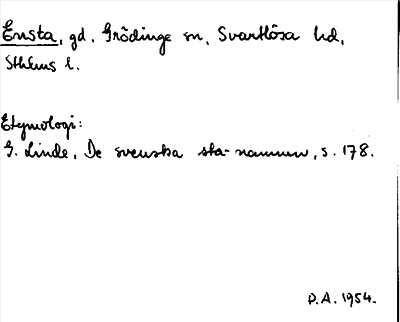 Ensta, gd. Grödinge sn, Svartlösa hd,
Sthlms l.
Etymologi:
G. Linde, De svenska sta-namnen, s. 178.
P.A. 1954.